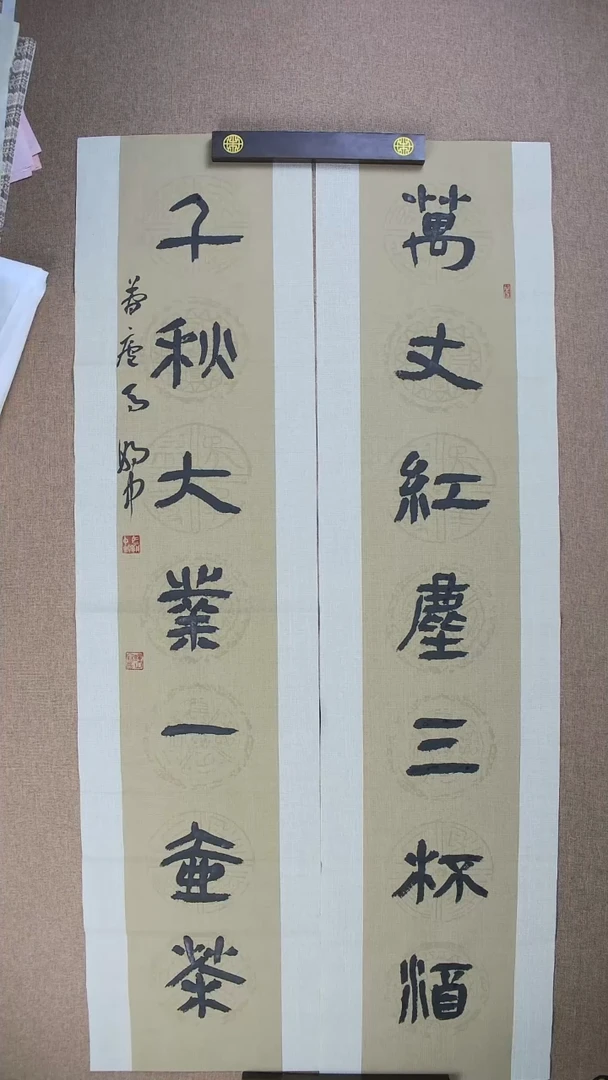 萬丈紅塵三杯酒
千秋大業一壺茶